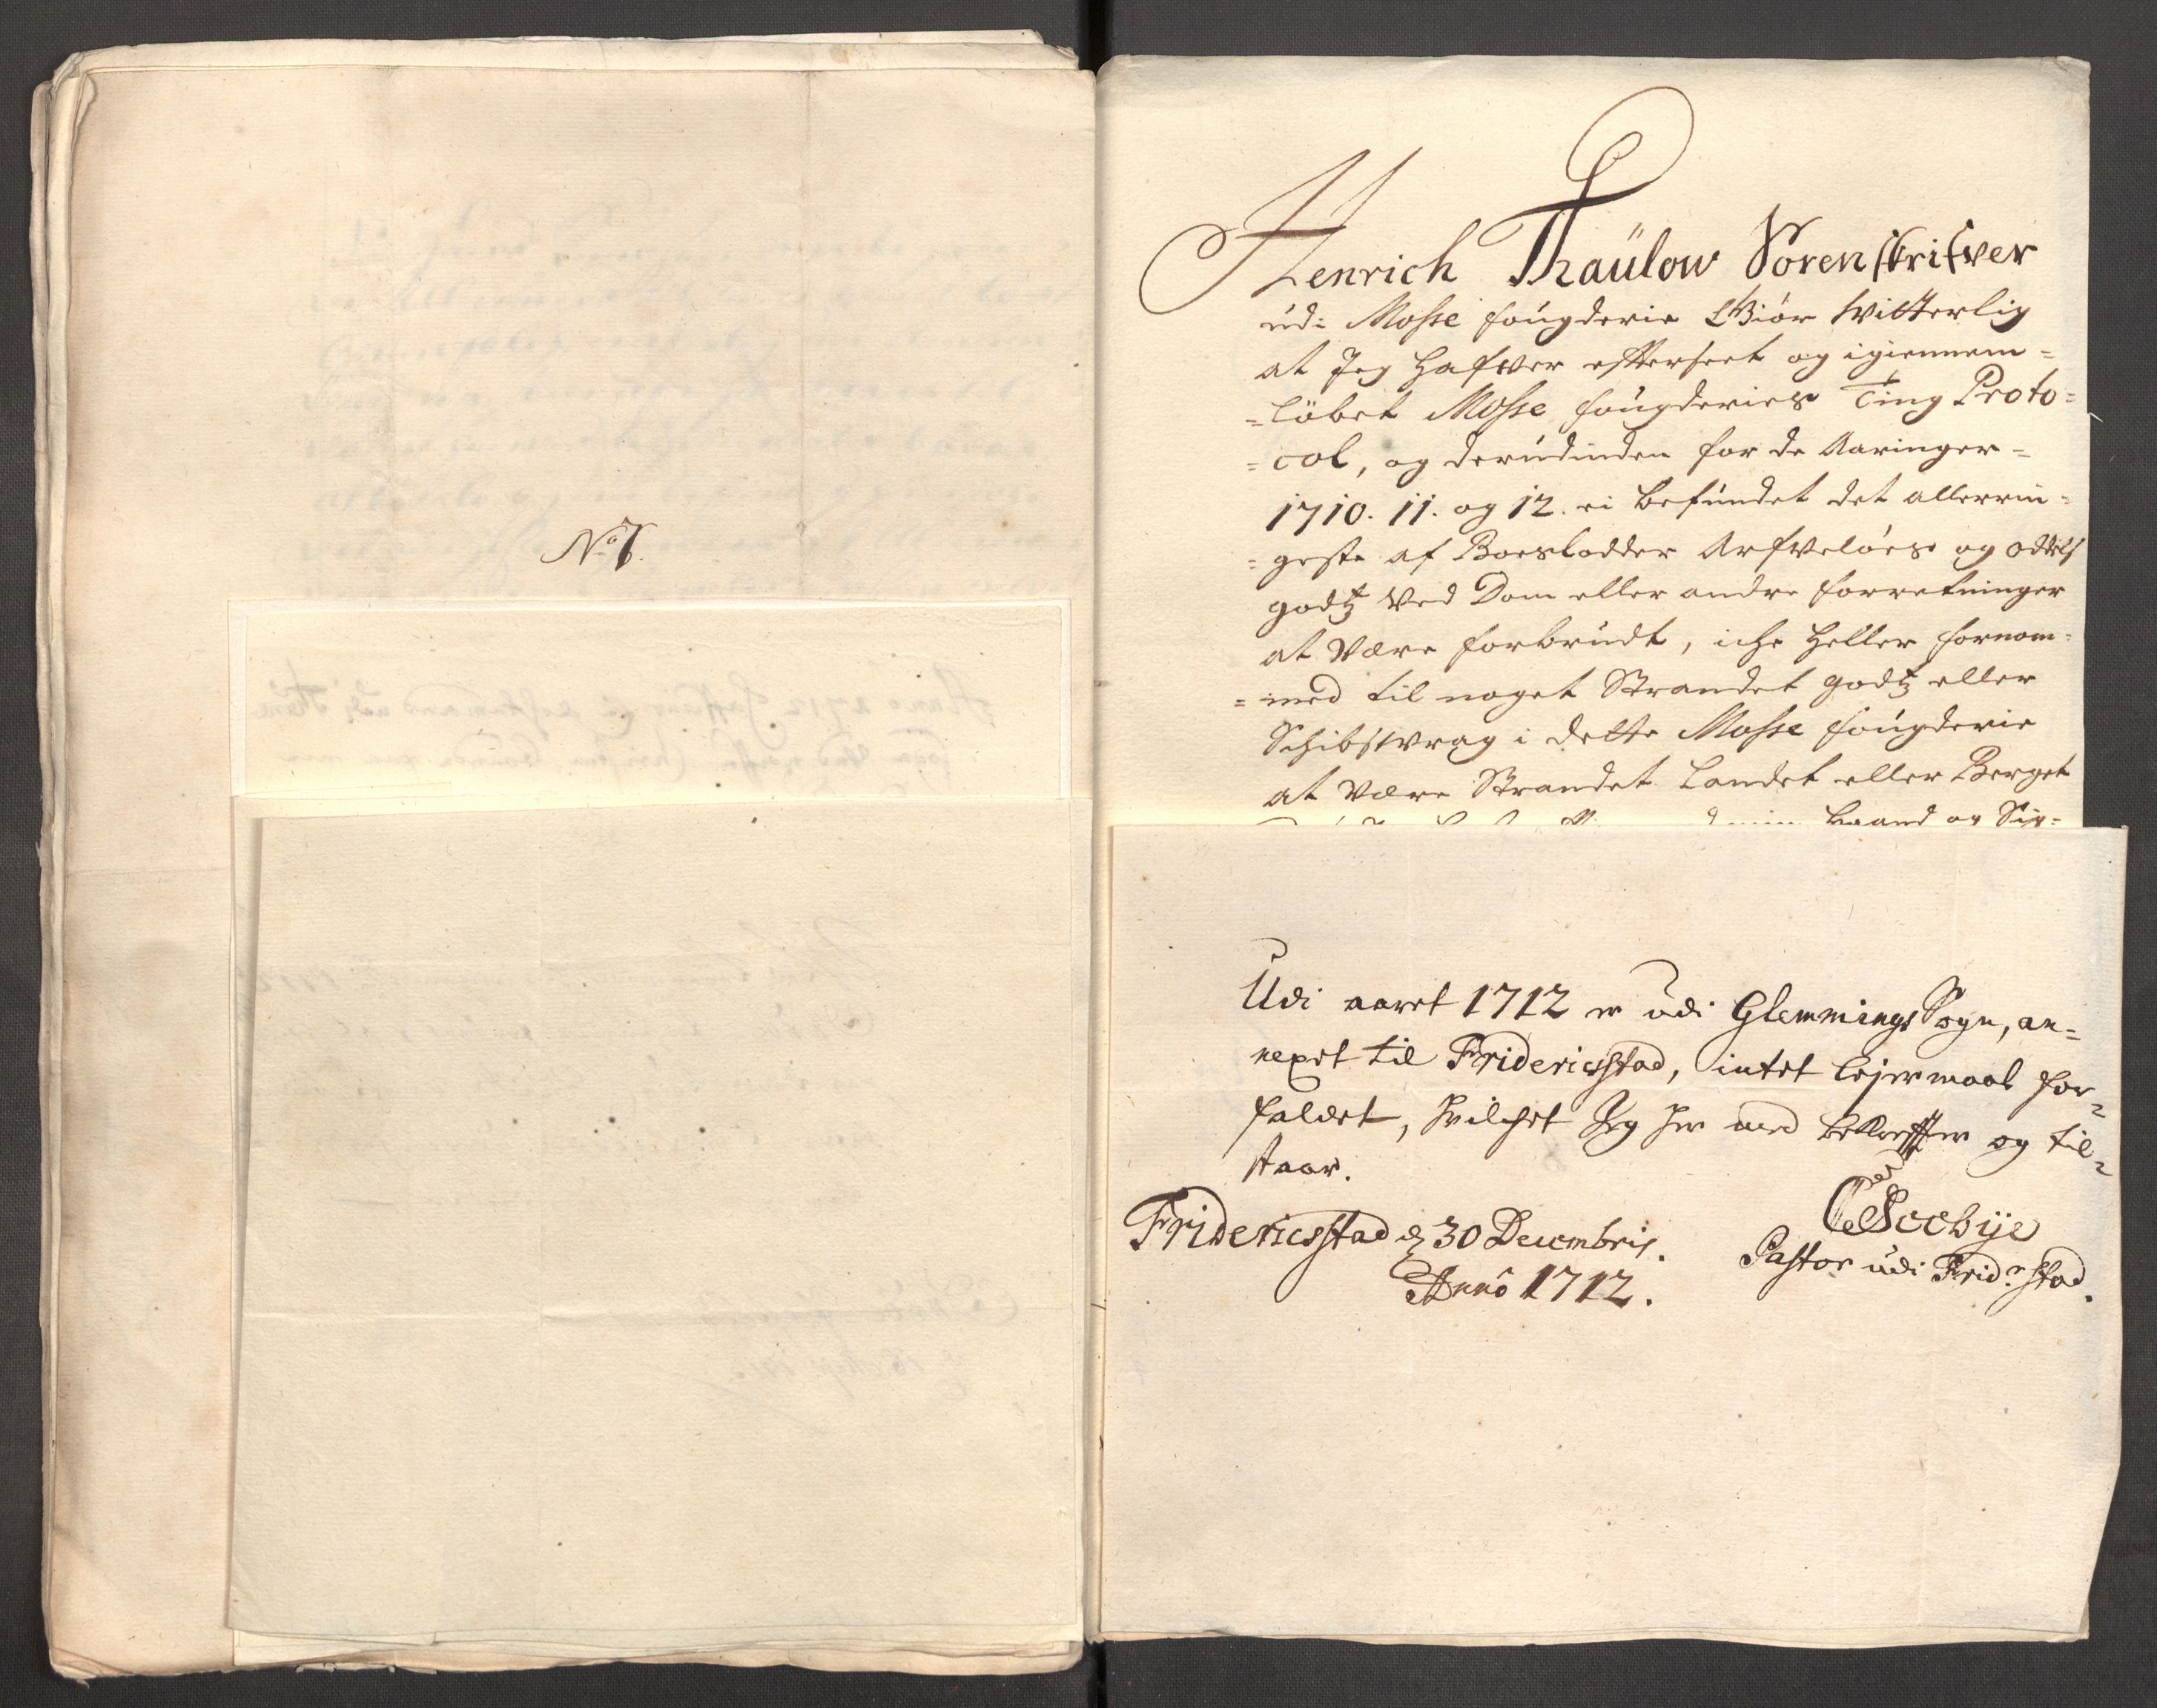 No 7.
Henrich Thaülow Sorenskrifver
ud: Mosse fougderie Giör Witterlig
at Jeg Hafwer efterseet og igiennem=
=löbet Mosse fougderies Ting Proto=
=col, og derudinden for de Aaringer=
1710. 11. og 12. ei befundet det allerrin=
=geste af Boeslodder Arfveløes og oddels
godtz Ved Dom eller andre forretninger
at Være forbrudt, iche Heller fornom=
=med til noget Strandet godtz eller
Schibsvrag i dette Mosse fougderie
at Være Strandet Landet eller Berget
min Haand og Sig=
Udi aaret 1712 er udi Glemmings Sogn, an=
nexet til Fridericsstad, intet lejermaal for=
faldet, hvilchet Jeg her med bekreffter og til=
staar.
Fridericsstad d 30 Decembris.
Anno 1712.
Pastor udi Frid: stad.